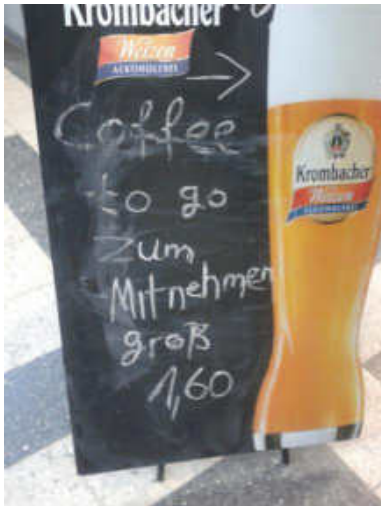 Krombacher
Weizen
ALKOHOLFREI
Coffee
to go
zum
Mitnehmen
groß
1,60
Krombacher
Weizen
ALKOHOLFREI